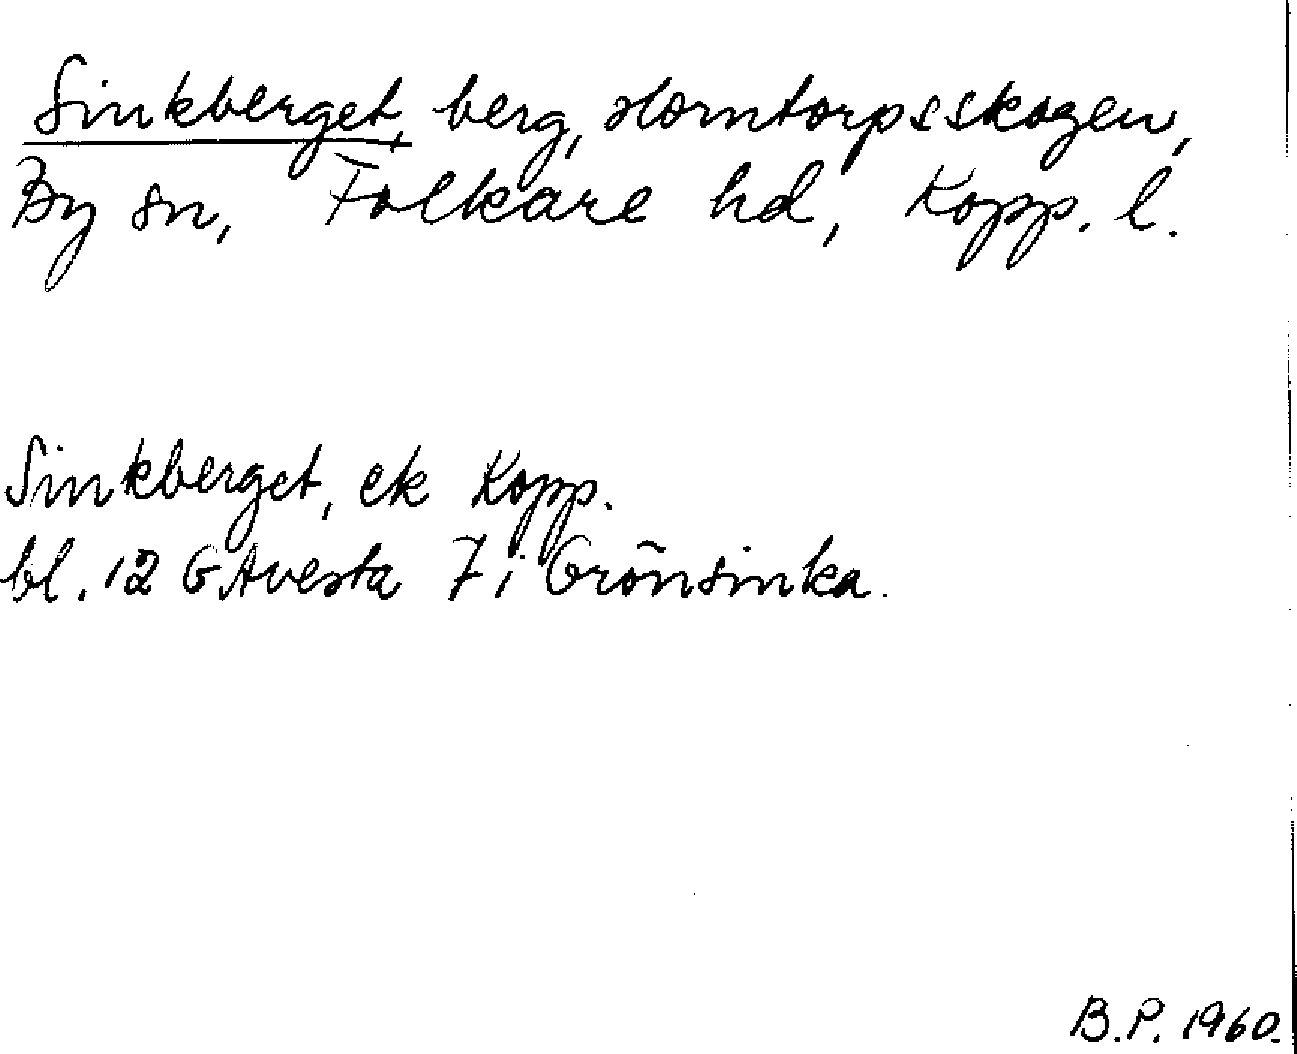 Sinkberget, berg, Horntorpsskogen,
By sn, Folkare hd, Kopp. l.
Sinkberget, ek Kopp.
bl. 12 G Avesta 7 i Grönsinka.
B.P. 1960.